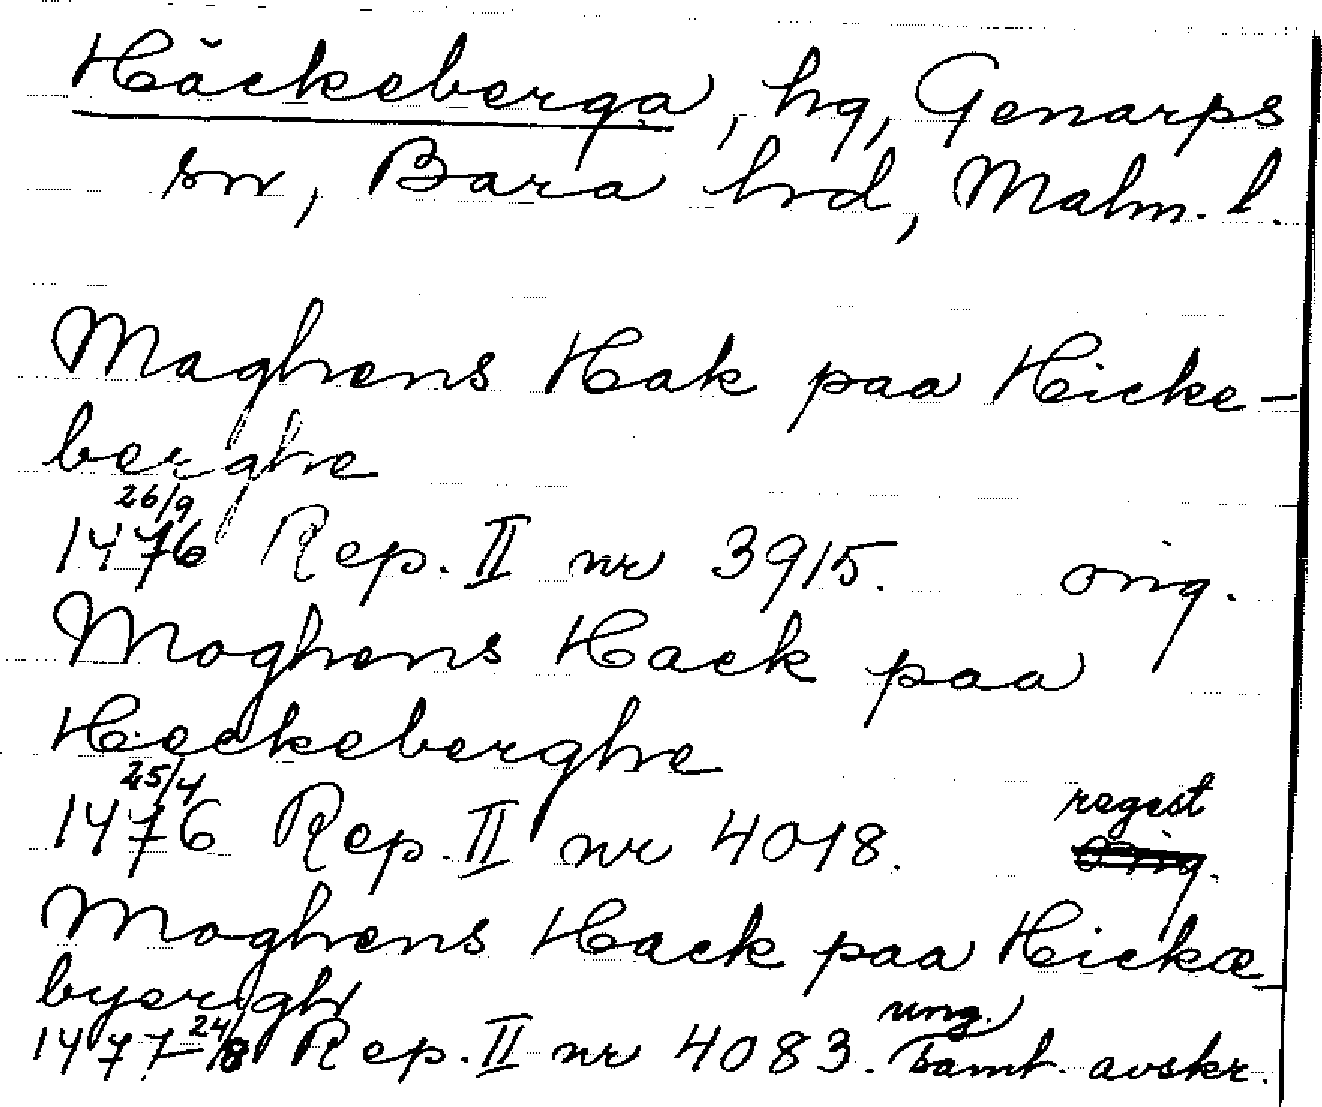 Häckeberga, hg, Genarps
sn, Bara hrd, Malm. l.
Maghens Hak paa Hicke-
berghe
26/9
1476 Rep. II nr 3915. orig.
Moghens Hack paa
Heckeberghe
25/4
1476 Rep. II nr 4018. regest
orig.
Moghens Hack paa Hickæ
byergh
1477 24/8 Rep. II nr 4083. samt. avskr.